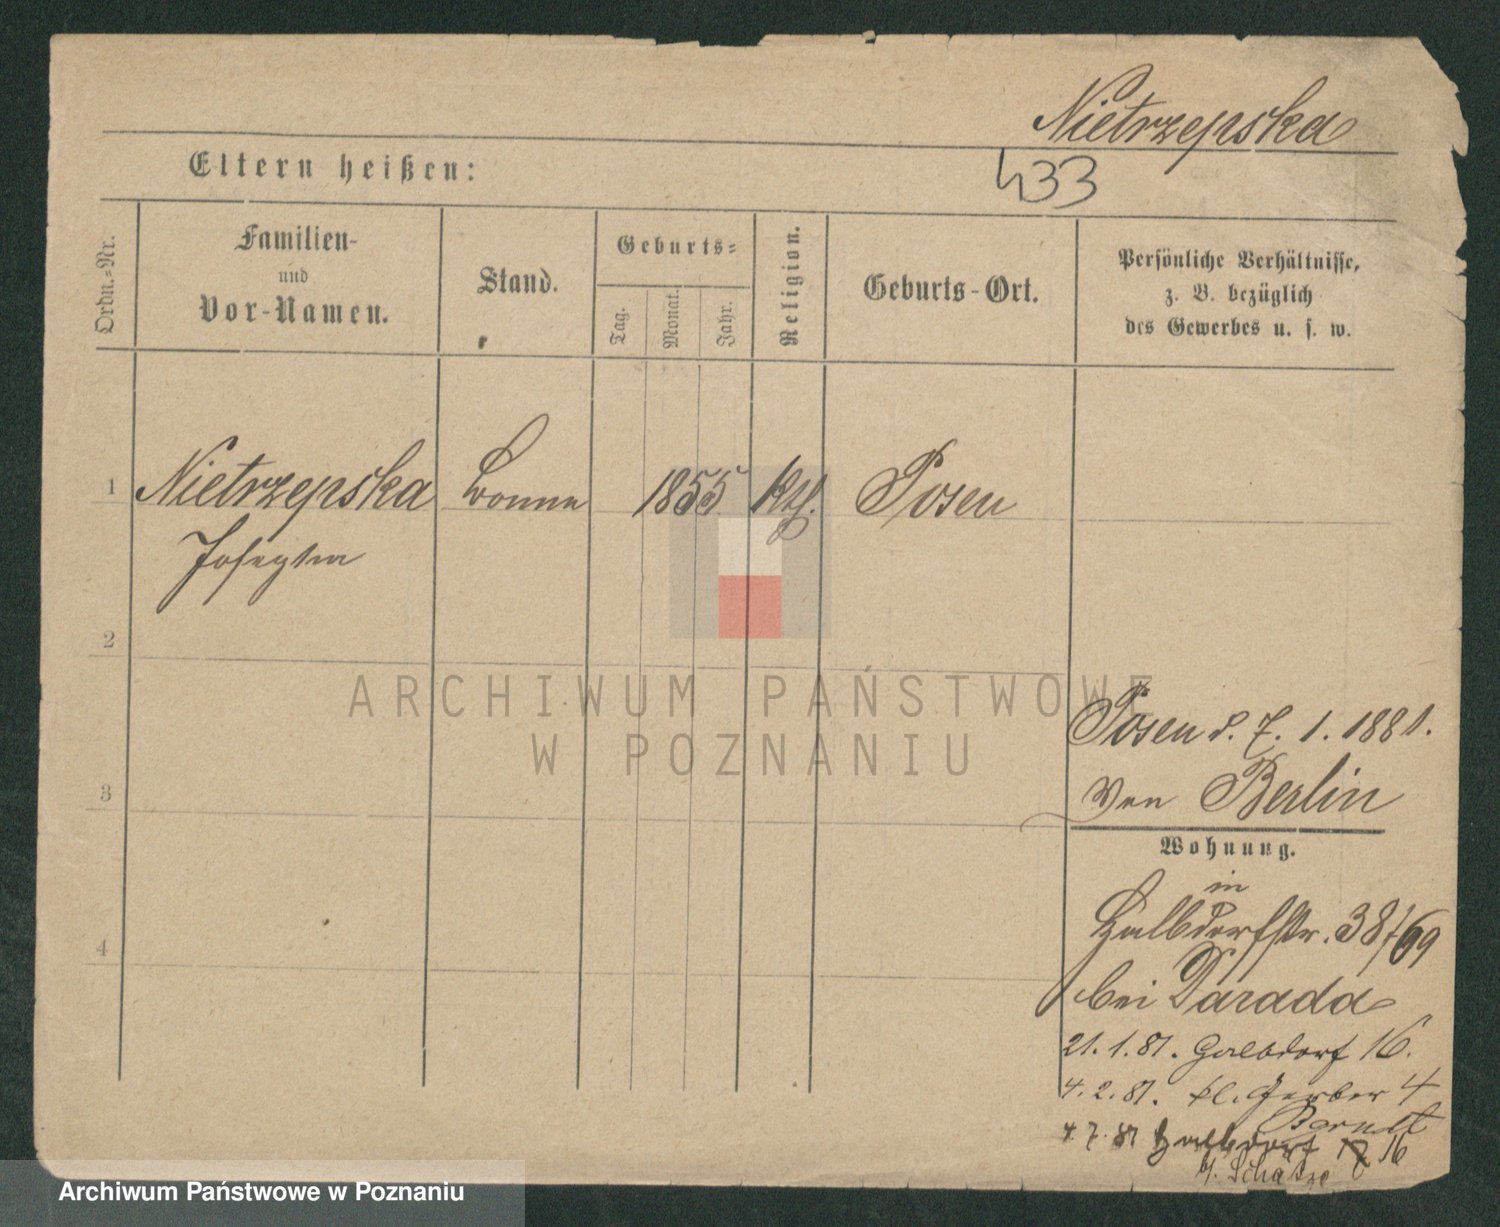 Nietrzepska
433
Eltern heißen:
Ordn.-Nr.
Familien-
und
Vor-Namen.
Stand.
Geburts-
Tag.
Monat.
Jahr.
Religion.
Geburts-Ort.
Persönliche Verhältnisse,
z. B. bezüglich
des Gewerbes u. s. w.
1 Nietrzepska Bonne 1855 Kth. Posen
2
3
4
ARCHIWUM PAŃSTWOWE
W POZNANIU
Posen d. 7. 1. 1881.
von Berlin
Wohnung.
in
Halbdorfstr. 38/69
bei Darada
21. 1. 81. Halbdorf 16.
4. 2. 81. kl. Gerber 4
Berndt
4. 7. 81 Halbdorf 16
Archiwum Państwowe w Poznaniu